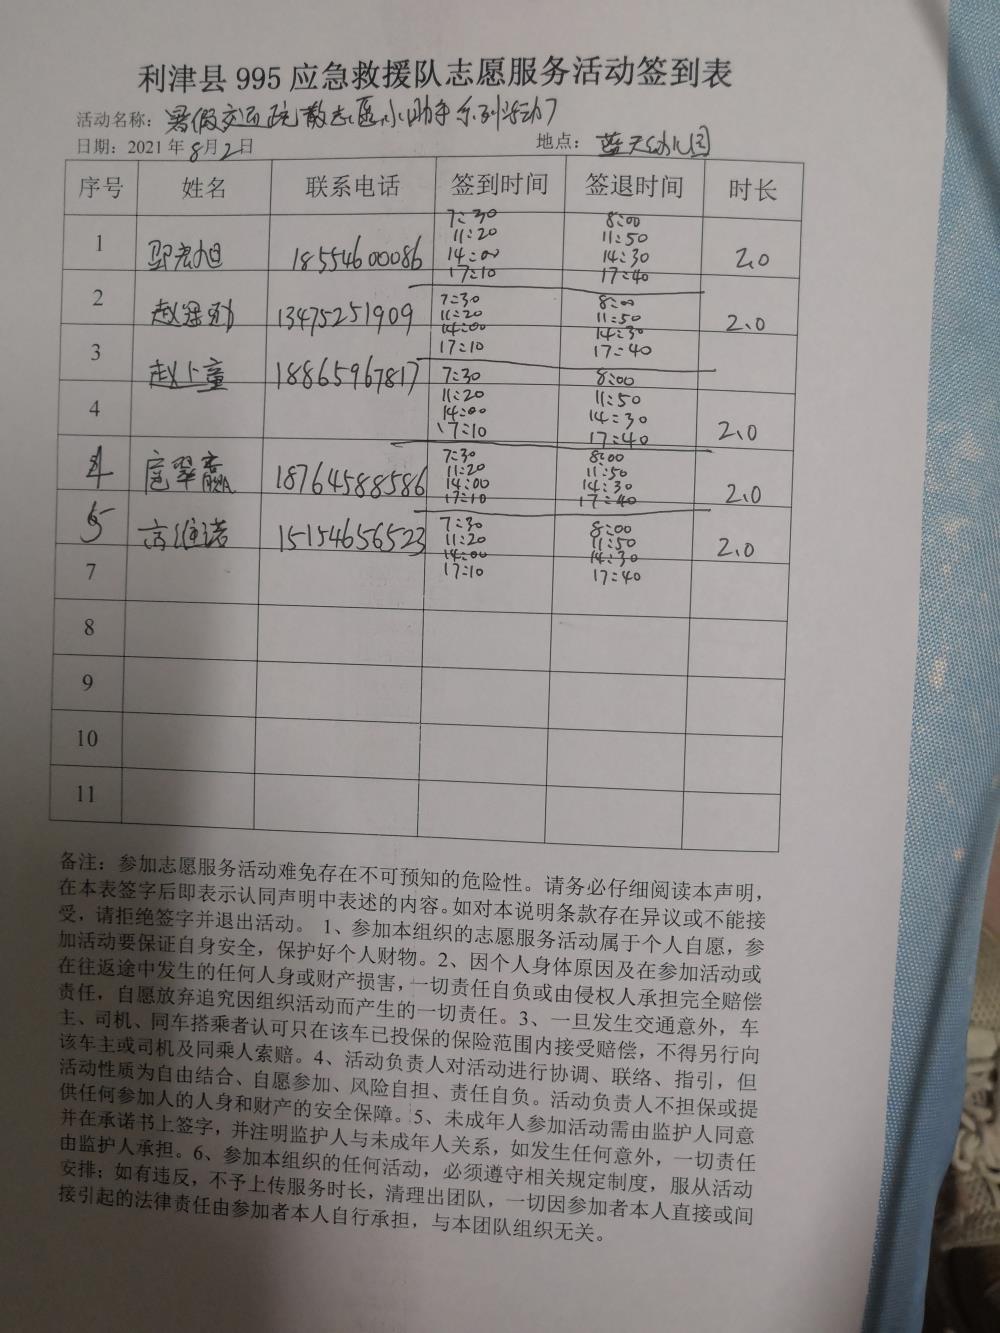 利津县 995 应急救援队志愿服务活动签到表
活动名称：暑假交通疏散志愿小助手系列活动7
日期：2021 年 8月2日 地点：蓝天幼儿园
序号 姓名 联系电话 签到时间 签退时间 时长
7:30 8:00
11:20 11:50
1 18554600086 14:00 14:30 2.0
17:10 17:40
2 13475251909 7:30 8:00 2.0
11:20 11:50
14:00 14:30
3 17:10 17:40
赵卜童 18865967817 7:30 8:00
11:20 11:50
4 14:00 14:30 2.0
17:10 17:40
4 18764588586 7:30 8:00 2.0
11:20 11:50
14:00 14:30
17:10 17:40
5 15154656523 7:30 8:00 2.0
11:20 11:50
14:00 14:30
7 17:10 17:40
8
9
10
11
备注：参加志愿服务活动难免存在不可预知的危险性。请务必仔细阅读本声明，
在本表签字后即表示认同声明中表述的内容。如对本说明条款存在异议或不能接
受，请拒绝签字并退出活动。 1、参加本组织的志愿服务活动属于个人自愿，参
加活动要保证自身安全，保护好个人财物。2、因个人身体原因及在参加活动或
在往返途中发生的任何人身或财产损害，一切责任自负或由侵权人承担完全赔偿
责任，自愿放弃追究因组织活动而产生的一切责任。3、一旦发生交通意外，车
主、司机、同车搭乘者认可只在该车已投保的保险范围内接受赔偿，不得另行向
该车主或司机及同乘人索赔。4、活动负责人对活动进行协调、联络、指引，但
活动性质为自由结合、自愿参加、风险自担、责任自负。活动负责人不担保或提
供任何参加人的人身和财产的安全保障。5、未成年人参加活动需由监护人同意
并在承诺书上签字，并注明监护人与未成年人关系，如发生任何意外，一切责任
由监护人承担。6、参加本组织的任何活动，必须遵守相关规定制度，服从活动
安排；如有违反，不予上传服务时长，清理出团队，一切因参加者本人直接或间
接引起的法律责任由参加者本人自行承担，与本团队组织无关。